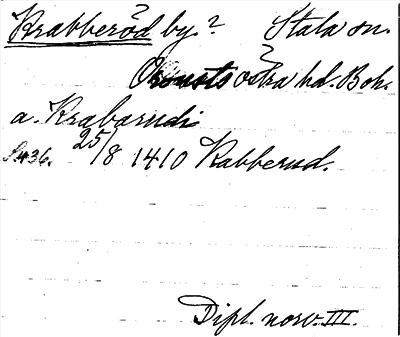 Krabberöd by.? Stala sn.
?
Orousts östra hd. Boh.
a. Krabarudi
S. 436. 25/8 1410 Kabberud.
Dipl. norv. III.